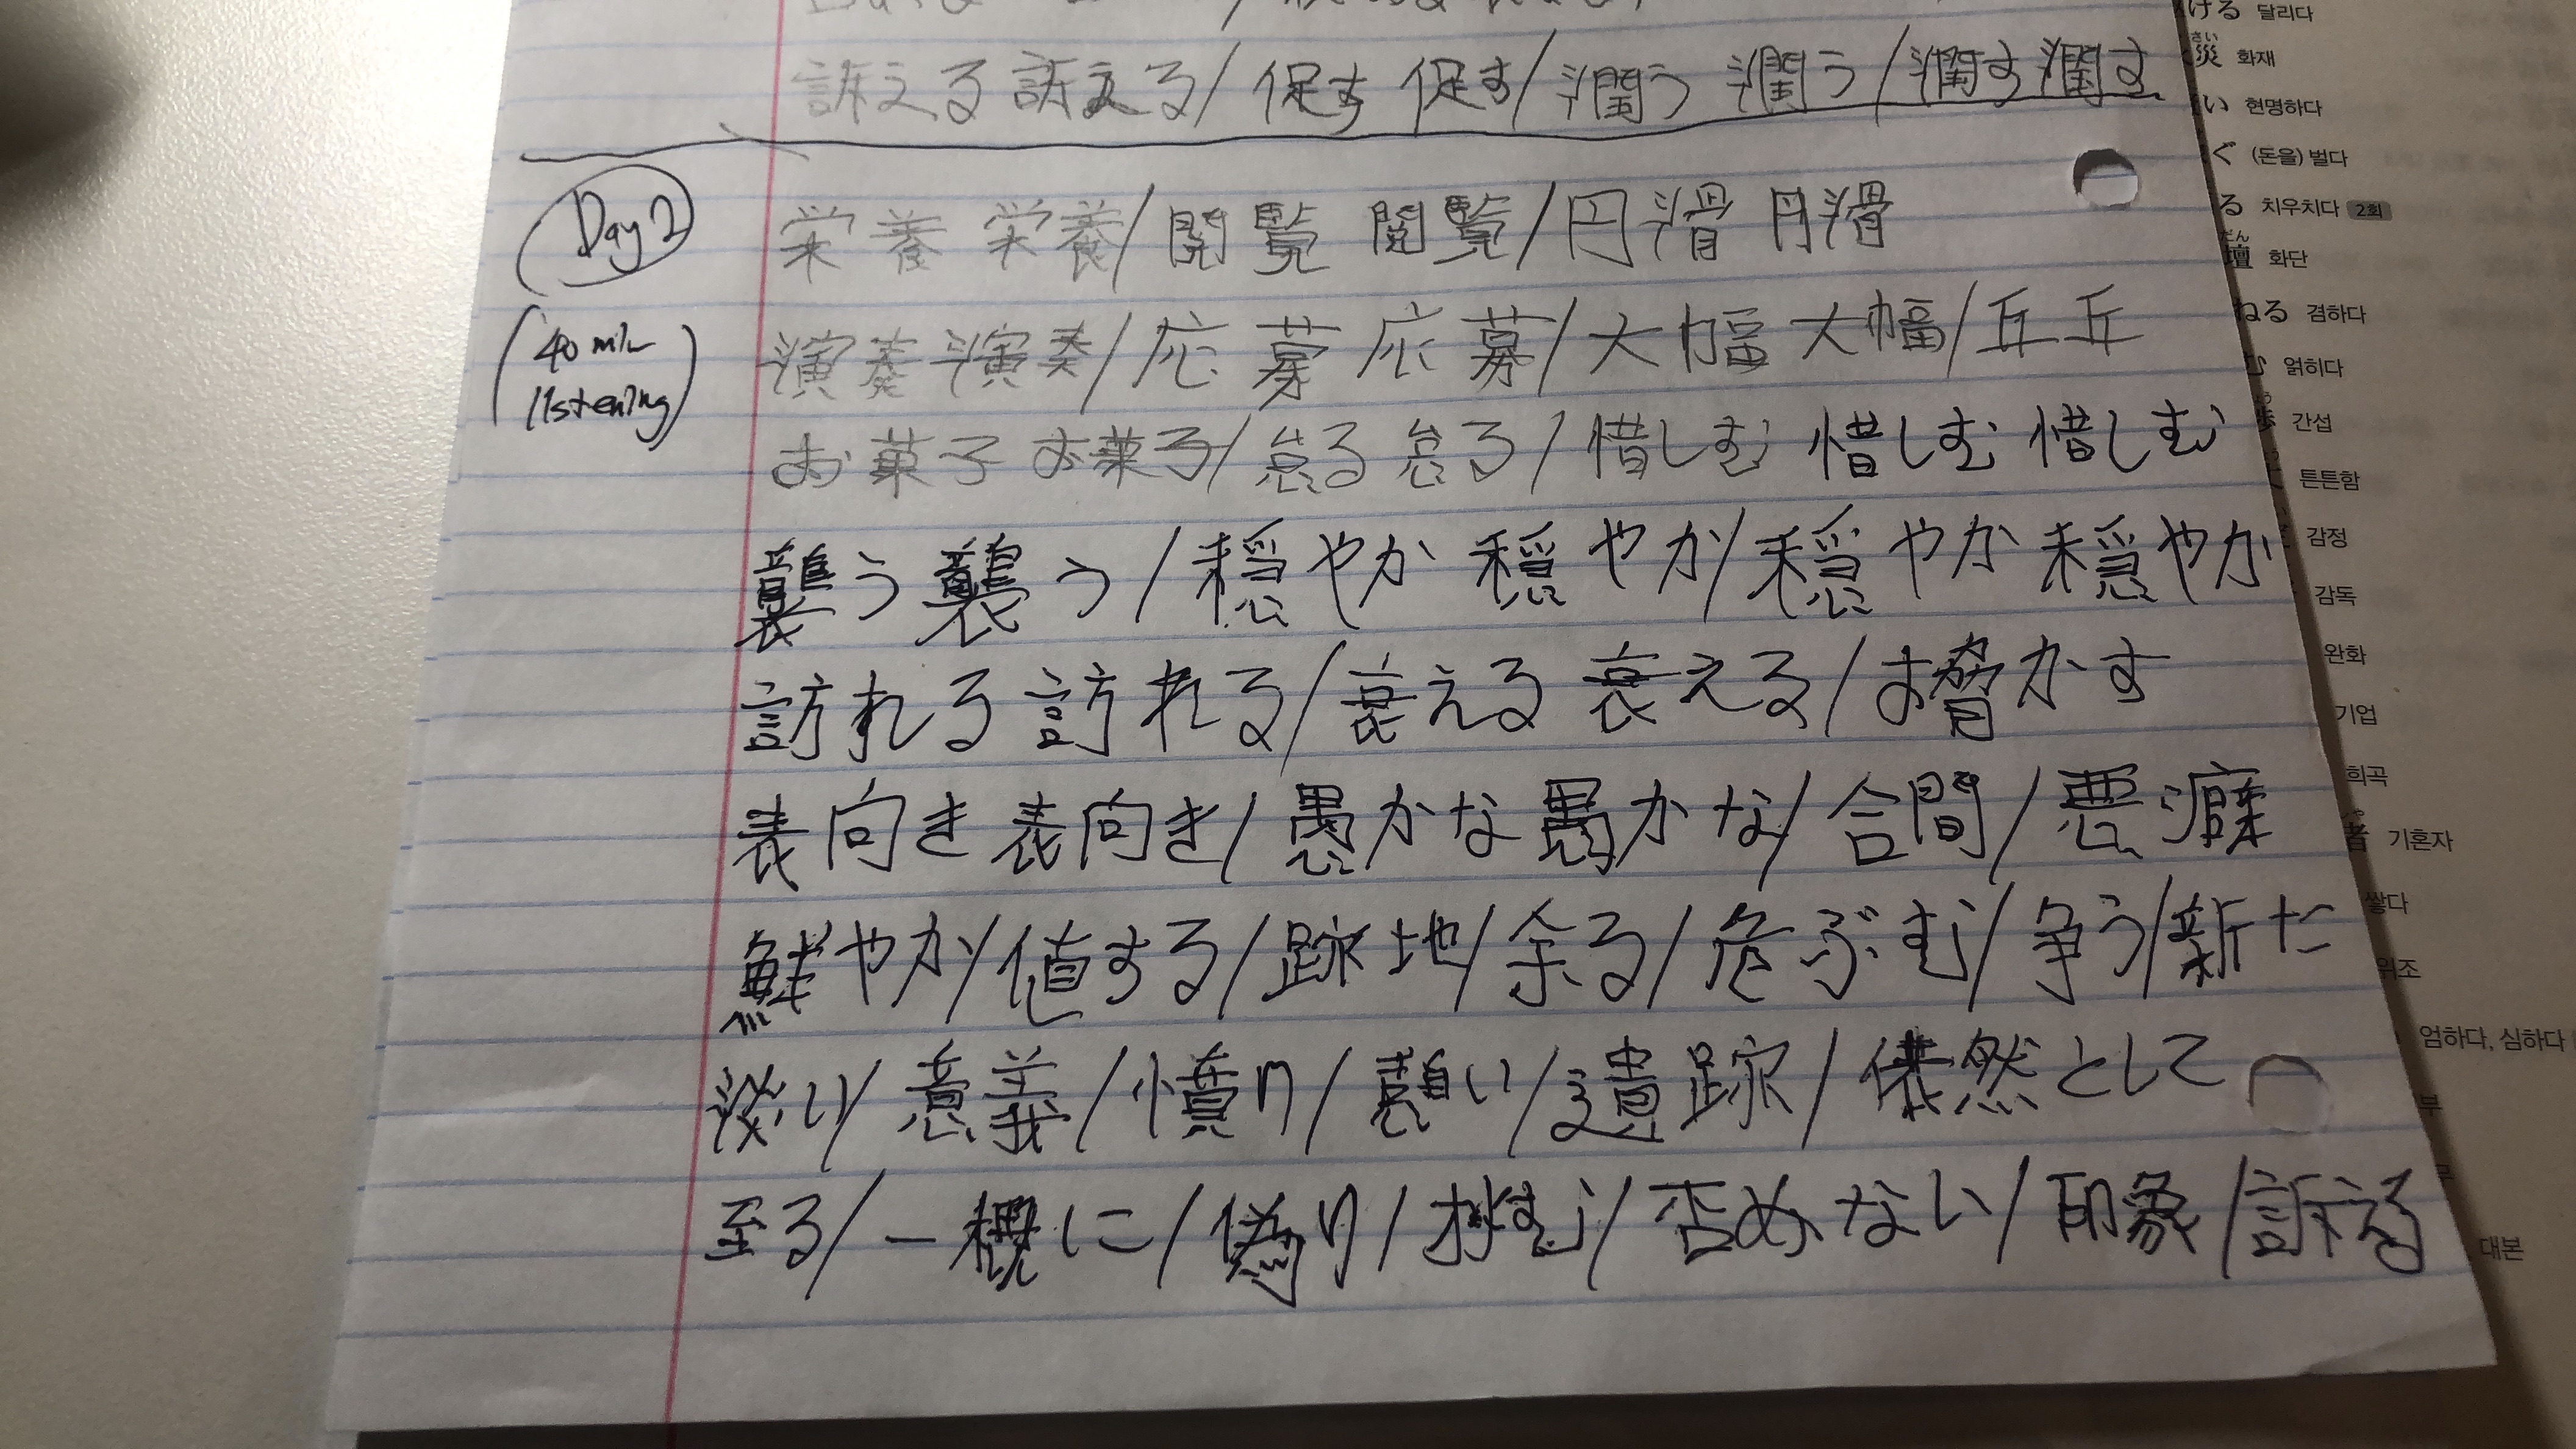 訴える 訴える/促す 促す/潤う 潤う/潤す 潤す
Day 2
栄養 栄養/閲覧 閲覧/円滑 円滑
(40 min
listening)
演奏 演奏/応募 応募/大幅 大幅/丘 丘
お菓子 お菓子/怠る 怠る/惜しむ 惜しむ 惜しむ
襲う 襲う/穏やか 穏やか/穏やか 穏やか
訪れる 訪れる/衰える 衰える/お脅かす
表向き 表向き/愚かな 愚かな/合間/悪癖
鮮やか/値する/跡地/余る/危ぶむ/争う/新た
淡い/意義/憤り/憩い/遺跡/依然として
至る/一概に/偽り/挑む/否めない/印象/訴える
ける 달리다
さい
災 화재
い 현명하다
ぐ (돈을) 벌다
る 치우치다 2회
だん
壇 화단
ねる 겸하다
む 얽히다
간섭
튼튼함
감정
감독
완화
기업
희곡
者 기혼자
쌓다
위조
엄하다, 심하다
부
대본